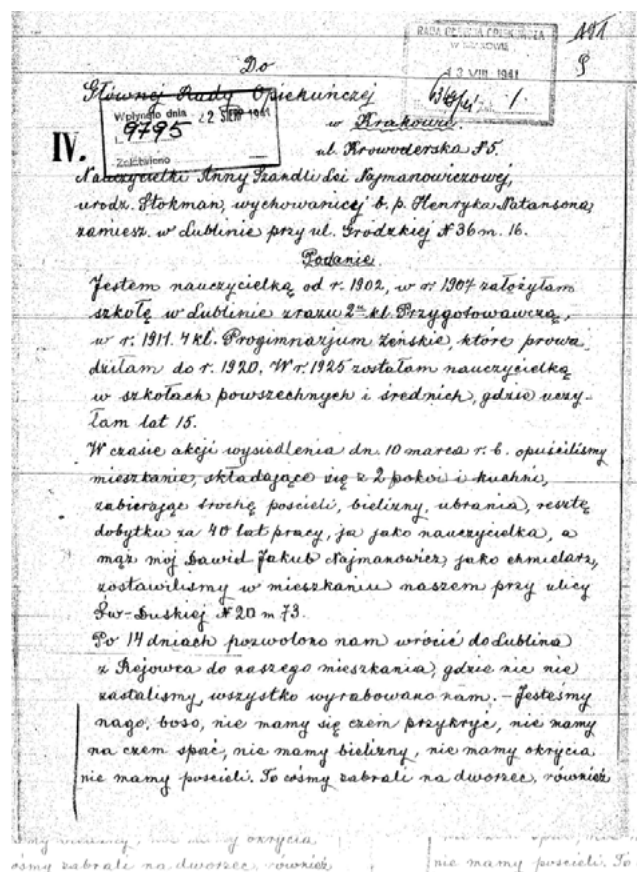 191
RADA GŁÓWNA OPIEKUŃCZA
W KRAKOWIE
13 VIII 1941
Do
Głównej Rady Opiekuńczej
Wpłynęło dnia 22 SIERP 1941
L. 9795
Załatwiono
IV.
w Krakowie
ul. Krowoderska № 5.
Nauczycielki Anny Szandli Lei Najmanowiczowej,
urodz. Stokman, wychowanicy b. p. Henryka Natansona,
zamiesz. w Lublinie przy ul. Grodzkiej № 36 m. 16.
Podanie
Jestem nauczycielką od r. 1902, w r. 1907 założyłam
szkołę w Lublinie zrazu 2 kl. Przygotowawczą,
w r. 1911. 4 kl. Progimnazjum Żeńskie, które prowa
dziłam do r. 1920. W r. 1925 zostałam nauczycielką
w szkołach powszechnych i średnich, gdzie uczy-
łam lat 15.
W czasie akcji wysiedlenia dn. 10 marca r. b. opuściliśmy
mieszkanie, składające się z 2 pokoi i kuchni,
zabierając trochę poscieli, bielizny, ubrania, resztę
dobytku za 40 lat pracy, ja jako nauczycielka, a
mąż mój Dawid Jakub Najmanowicz jako chmielarz,
zostawiliśmy w mieszkaniu naszem przy ulicy
Św-Duskiej № 20 m 73.
Po 14 dniach pozwolono nam wrócić do Lublina
z Rejowca do naszego mieszkania, gdzie nic nie
zastaliśmy, wszystko wyrabowano nam. – Jesteśmy
nago, boso, nie mamy się czem przykryć, nie mamy
na czem spać, nie mamy bielizny, nie mamy okrycia
nie mamy poscieli. To cośmy zabrali na dworzec, również
okrycia
ośmy zabrali na dworzec, również
nie mamy poscieli. To